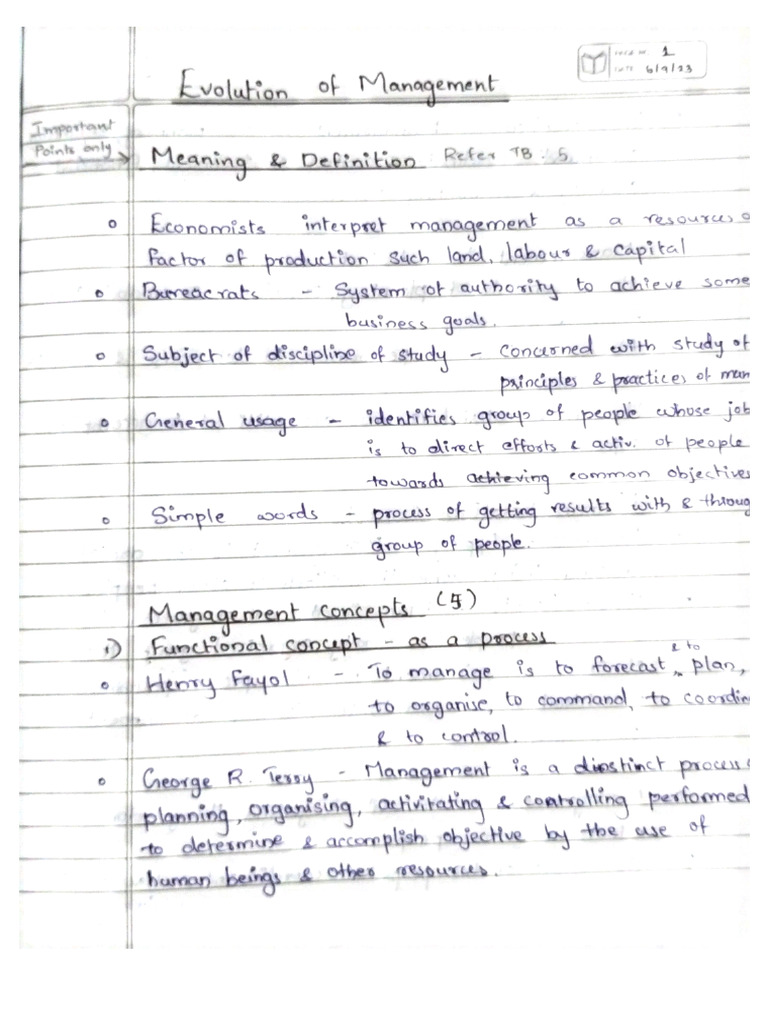 1
6/9/23
Evolution of Management
Important
Points only
Meaning & Definition Refer TB. 5
Economists interpret management as a resources
factor of production such land, labour & capital
Bureacrats - System of authority to achieve some
business goals.
Subject of discipline of study - concerned with study of
principles & practices of man
General usage - identifies group of people whose job
is to direct efforts & activ. of people
towards achieving common objectives
Simple words - process of getting results with & throug
group of people.
Management concepts (5)
i) Functional concept - as a process
Henry Fayol - To manage is to forecast & to plan,
to organise, to command, to coordin
& to control.
George R. Terry - Management is a dinstinct process
planning, organising, activitating & controlling performed
to determine & accomplish objective by the use of
human beings & other resources.